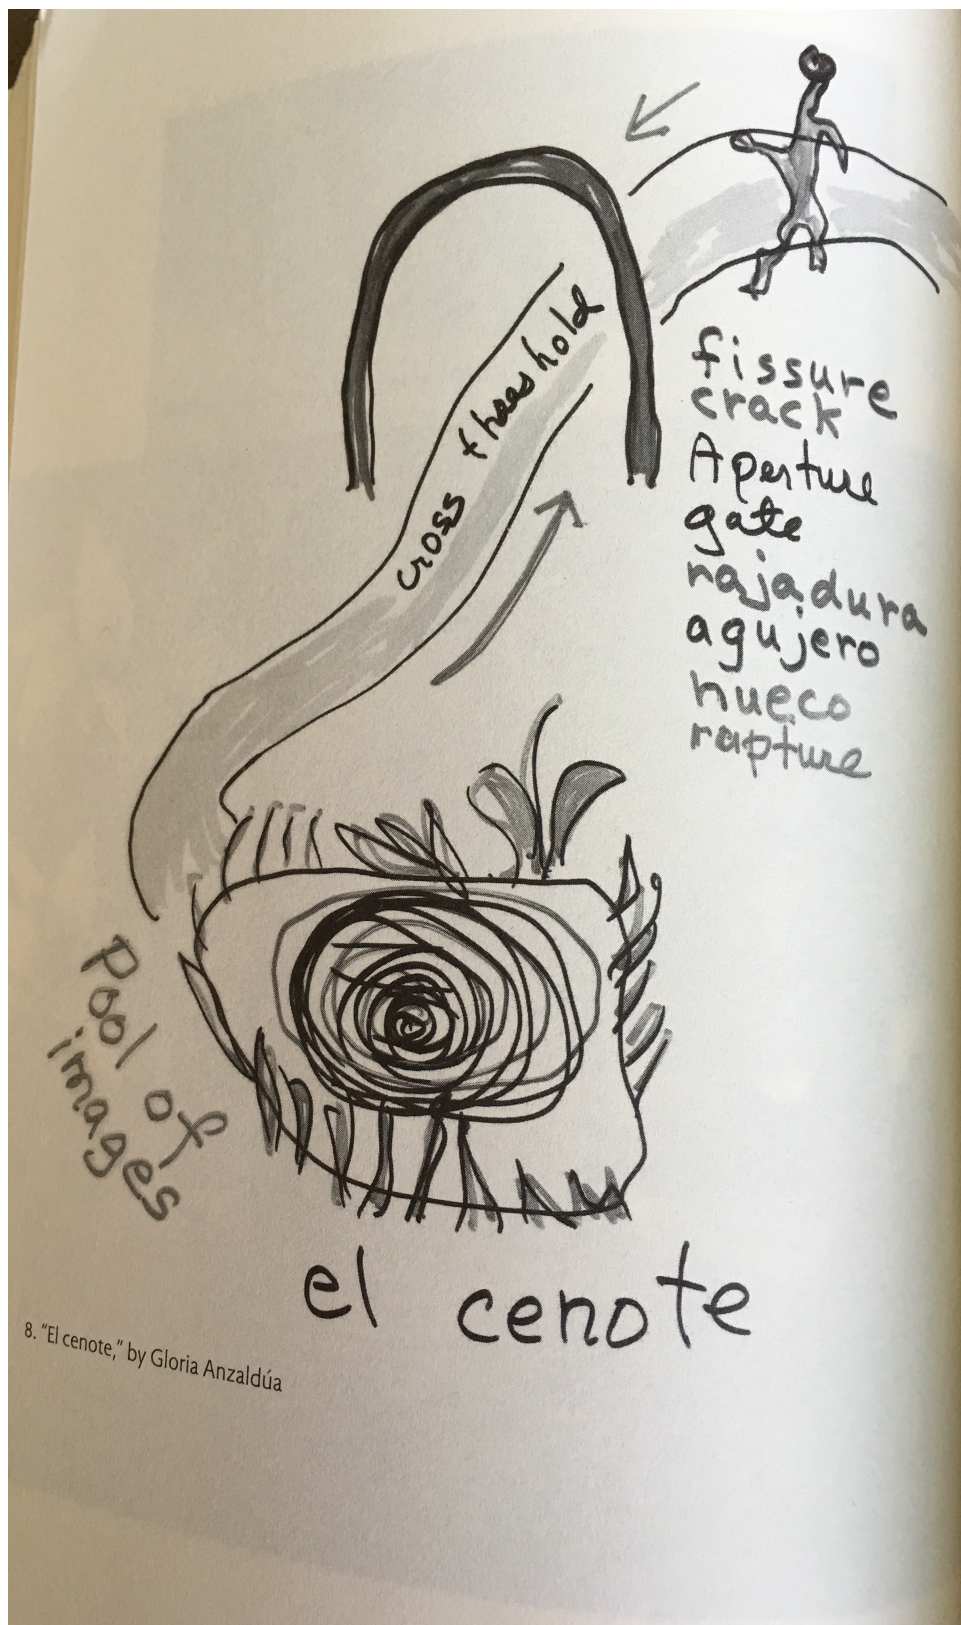 cross threshold
fissure
crack
Aperture
gate
rajadura
agujero
hueco
rapture
Pool of
images
el cenote
8. "El cenote," by Gloria Anzaldúa